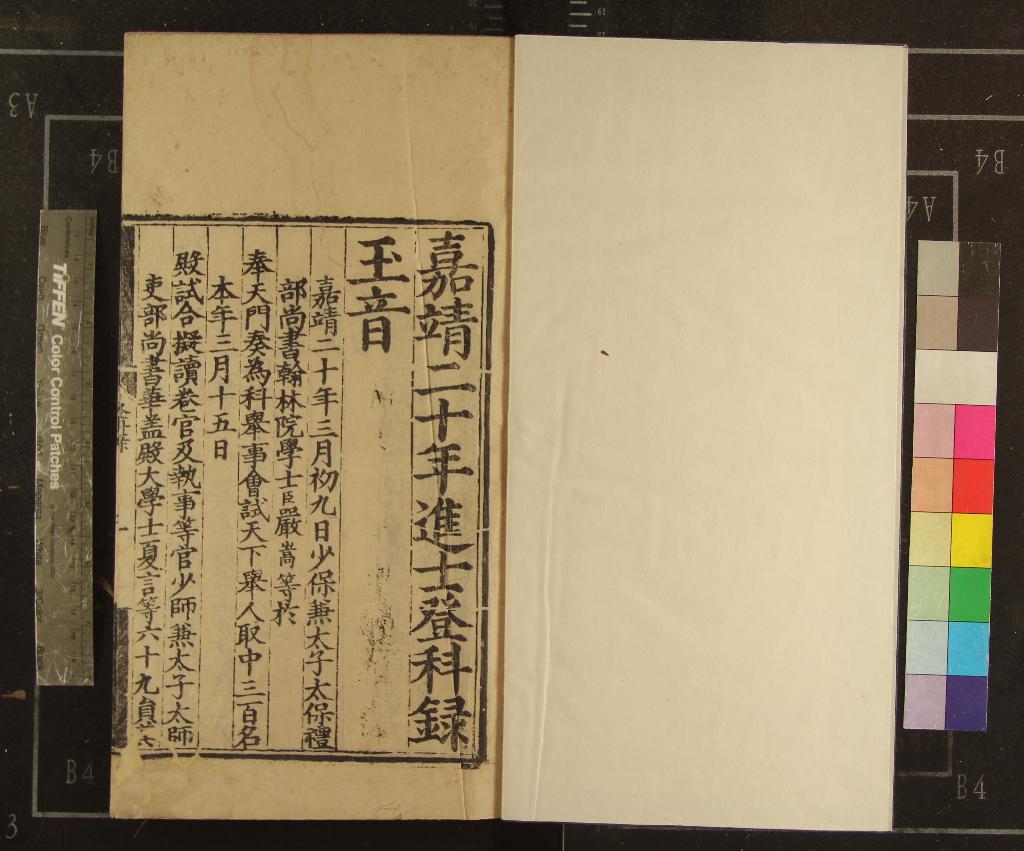 嘉靖二十年進士登科録
玉音
嘉靖二十年三月初九日少保兼太子太保禮
部尚書翰林院學士臣嚴嵩等於
奉天門奏為科舉事會試天下舉人取中三百名
本年三月十五日
殿試合擬讀卷官及執事等官少師兼太子太師
吏部尚書華盖殿大學士夏言等六十九員其
TIFFEN Color Control Patches
A3
B4
B4
A4
B4
B4
3
61